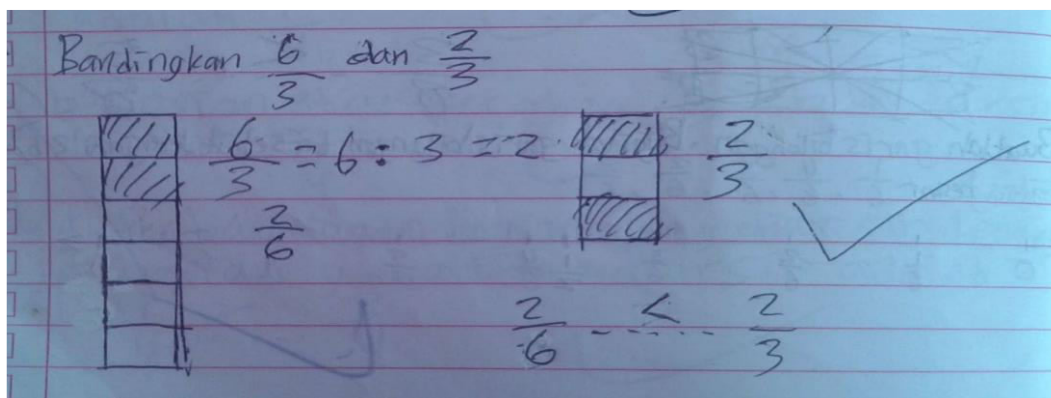 Bandingkan 6/3 dan 2/3
6/3 = 6 : 3 = 2
2/3
2/6
2/6 ..<.. 2/3